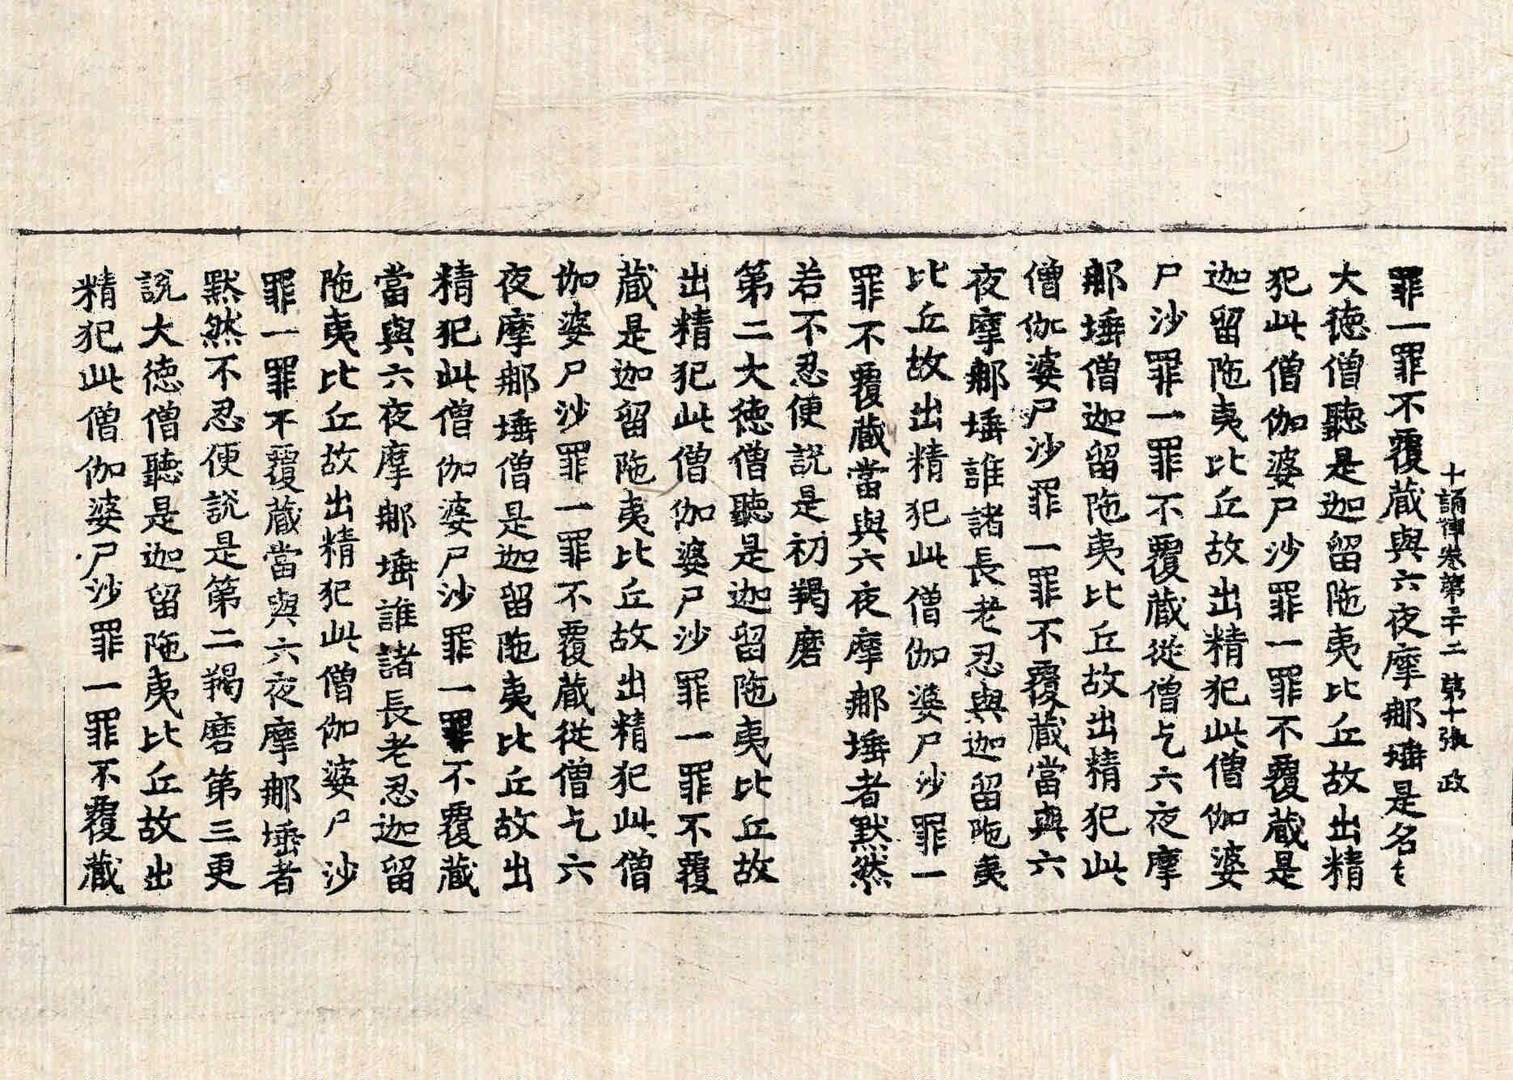 十誦律卷第三十二 第十張 政
罪一罪不覆藏與六夜摩那埵是名〻
大德僧聽是迦留陁夷比丘故出精
犯此僧伽婆尸沙罪一罪不覆藏是
迦留陁夷比丘故出精犯此僧伽婆
尸沙罪一罪不覆藏從僧乞六夜摩
那埵僧迦留陁夷比丘故出精犯此
僧伽婆尸沙罪一罪不覆藏當與六
夜摩那埵誰諸長老忍與迦留陁夷
比丘故出精犯此僧伽婆尸沙罪一
罪不覆藏當與六夜摩那埵者黙然
若不忍便說是初羯磨
第二大德僧聽是迦留陁夷比丘故
出精犯此僧伽婆尸沙罪一罪不覆
藏是迦留陁夷比丘故出精犯此僧
伽婆尸沙罪一罪不覆藏從僧乞六
夜摩那埵僧是迦留陁夷比丘故出
精犯此僧伽婆尸沙罪一罪不覆藏
當與六夜摩那埵誰諸長老忍迦留
陁夷比丘故出精犯此僧伽婆尸沙
罪一罪不覆藏當與六夜摩那埵者
黙然不忍便說是第二羯磨第三更
說大德僧聽是迦留陁夷比丘故出
精犯此僧伽婆尸沙罪一罪不覆藏